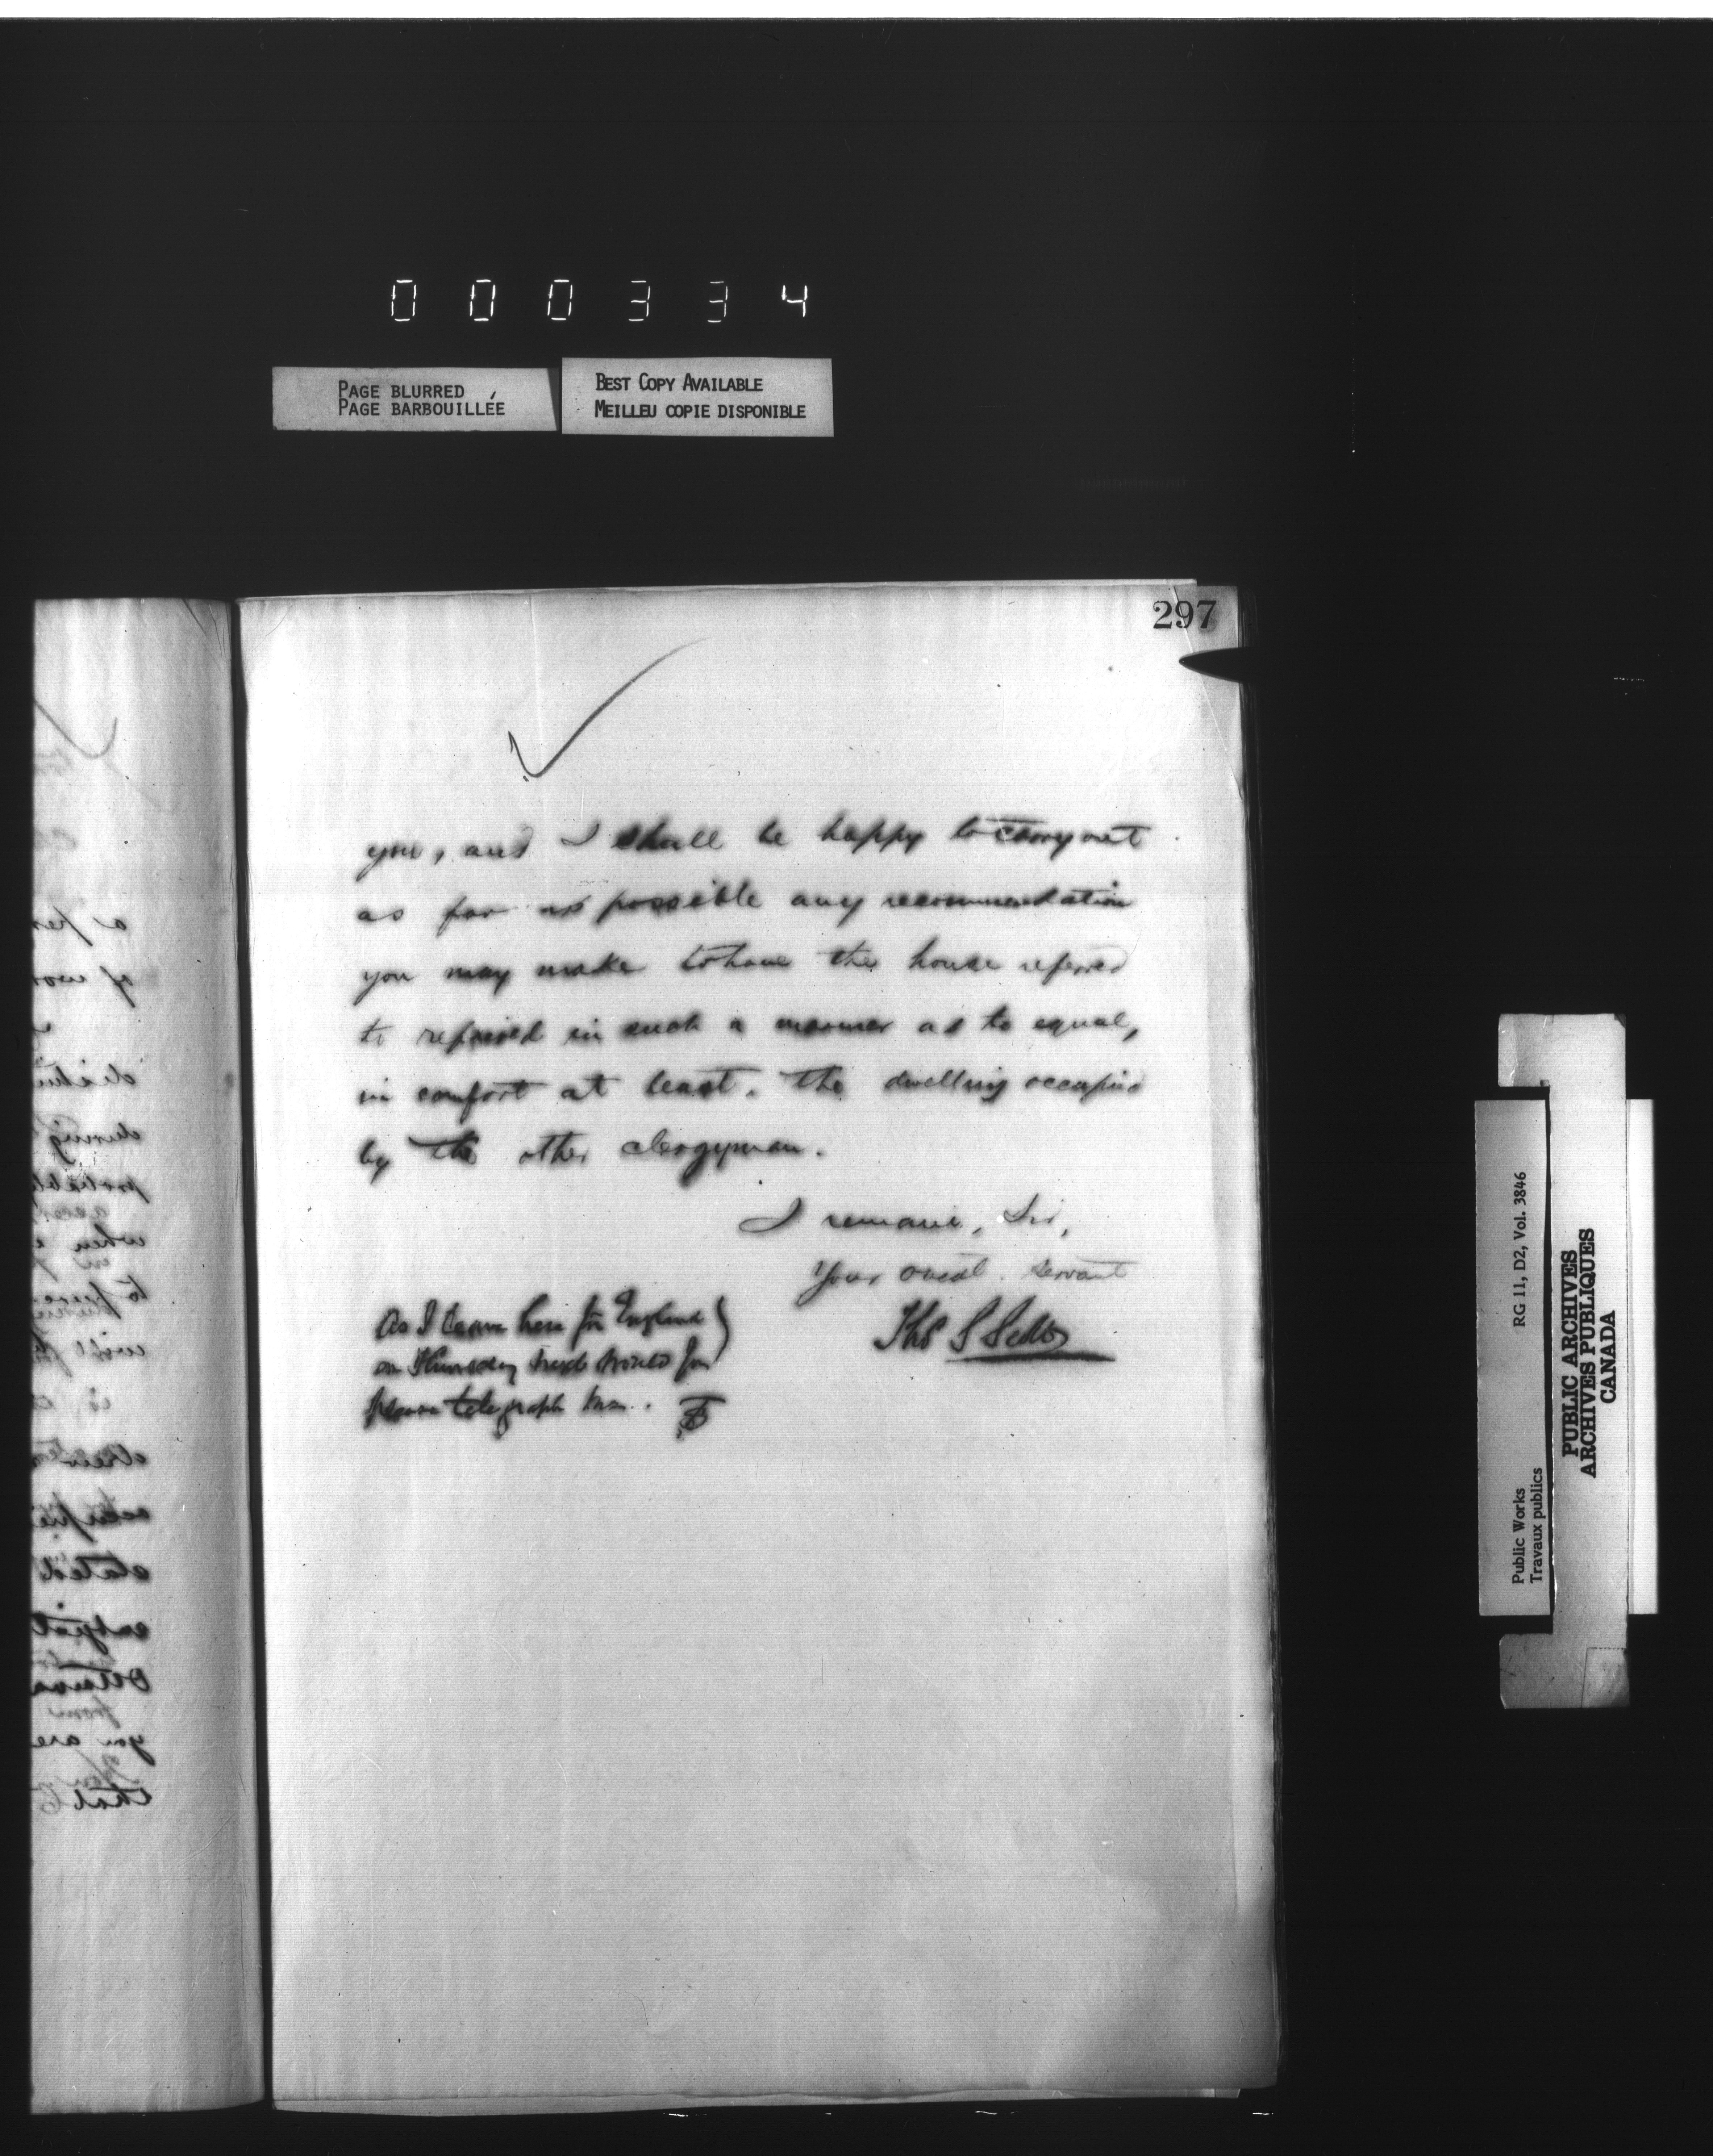 000334
PAGE BLURRED
PAGE BARBOUILLÉE
BEST COPY AVAILABLE
MEILLEU COPIE DISPONIBLE
297
you, and I shall be happy to carry out
as far as possible any recommendation
you may make to have the house referred
to repaired in such a manner as to equal,
in comfort at least, the dwelling occupied
by the other clergyman.
I remain, Sir,
Your obedt. servant
Thos S
As I leave here for England
on Thursday next would you
please telegraph me. TS
a
of
during
when
to
will
stated
Ottawa
from
you are
that
Public Works
Travaux publics
RG 11, D2, Vol. 3846
PUBLIC ARCHIVES
ARCHIVES PUBLIQUES
CANADA